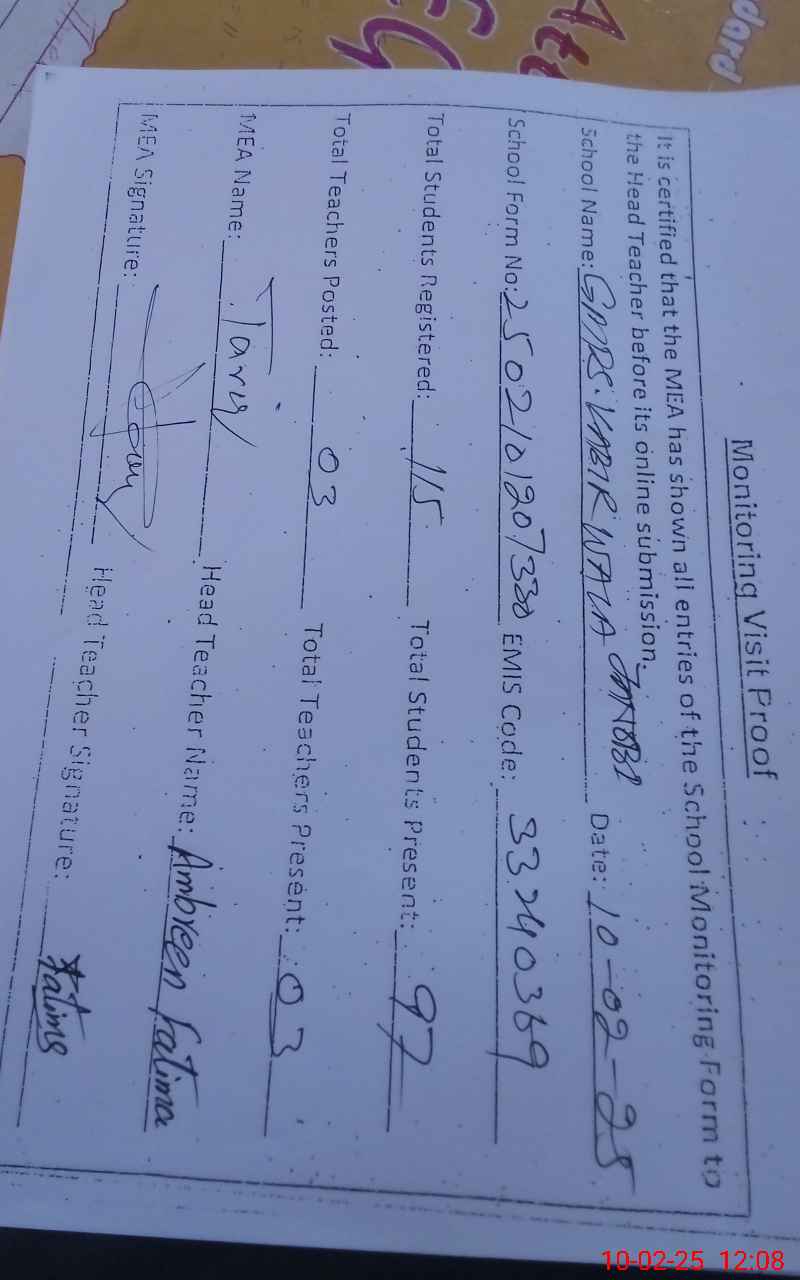 Monitoring Visit Proof
It is certified that the MEA has shown all entries of the School Monitoring Form to
the Head Teacher before its online submission.
School Name: GMPS. KABIR WALA JANOBI Date: 10-02-25
School Form No: 250210120733 EMIS Code: 33240369
Total Students Registered: 115 Total Students Present: 97
Total Teachers Posted: 03 Total Teachers Present: 03
MEA Name: Tariq Head Teacher Name: Ambreen Fatima
MEA Signature: Head Teacher Signature: Fatima
dard
10-02-25 12:08